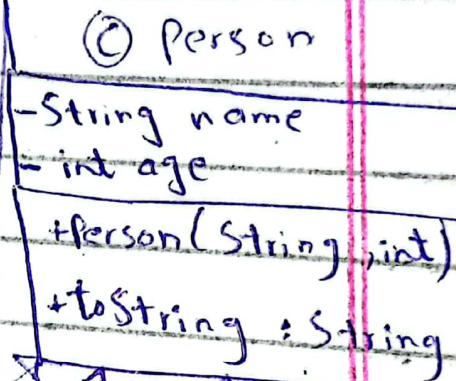 © Person
-String name
- int age
+Person(String, int)
+toString : String